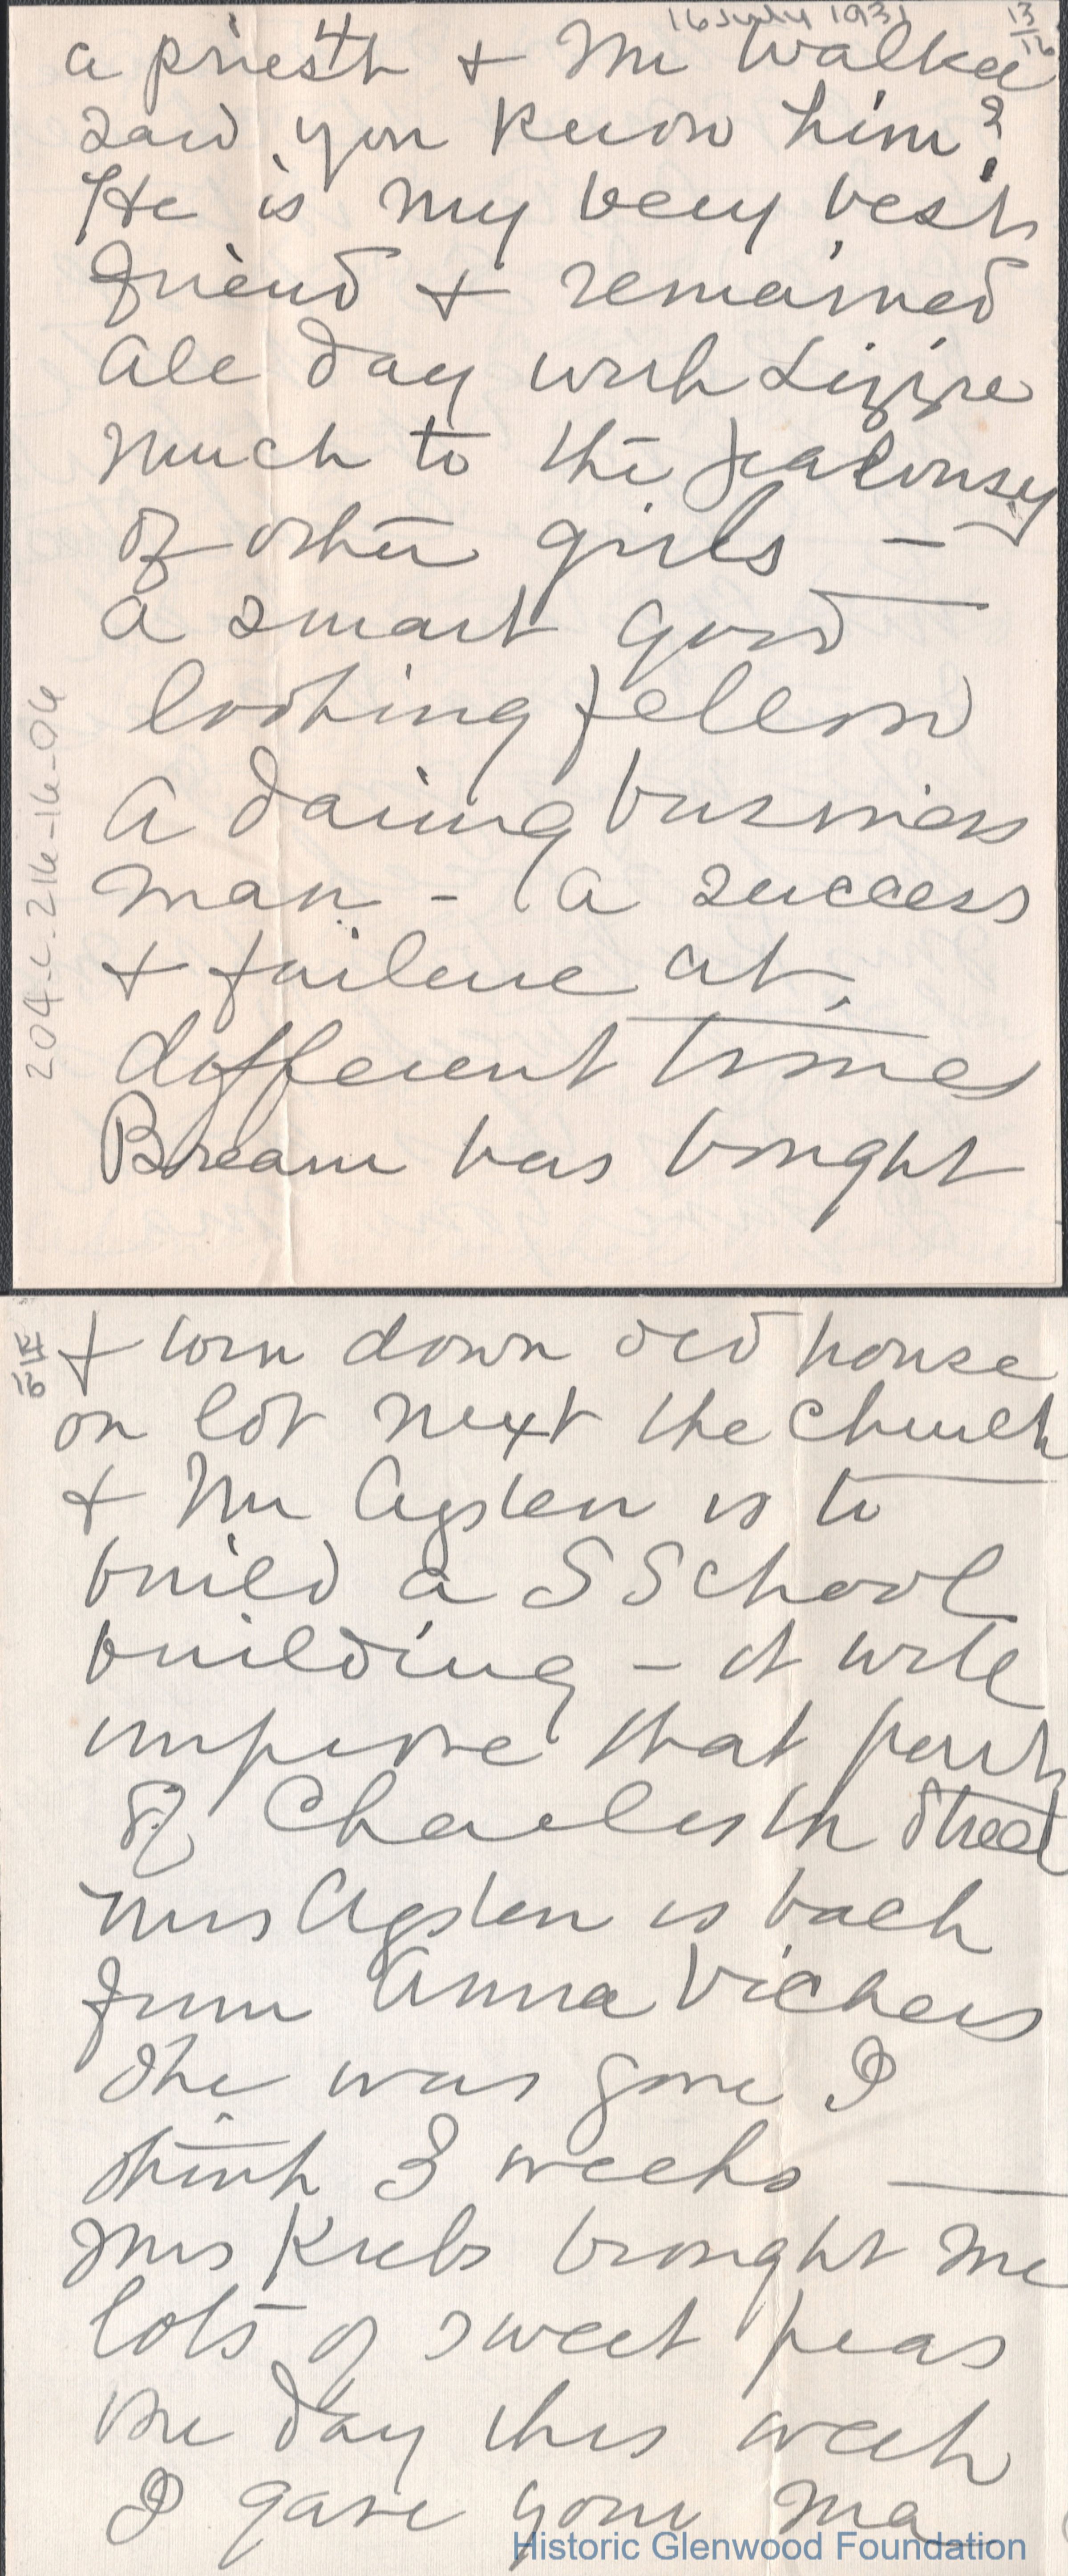 16 July 1931
13/16
a priest + Mr Walker
said, you know him?
He is my very best
friend + remained
all day with Lizzie
much to the jealousy
of other girls —
a smart good
looking fellow
a daring business
man - a success
+ failure at
different times
Bream has bought
204-c.216-16-06
14/16
+ torn down old house
on lot next the church
+ Mr Agsten is to
build a S School
building - it will
improve that part
of Charleston Street
Mrs Agsten is back
from Anna Vickers
She was gone I
think 3 weeks —
Mrs Krebs brought me
lots of sweet peas
one day this week
I gave your ma
Historic Glenwood Foundation